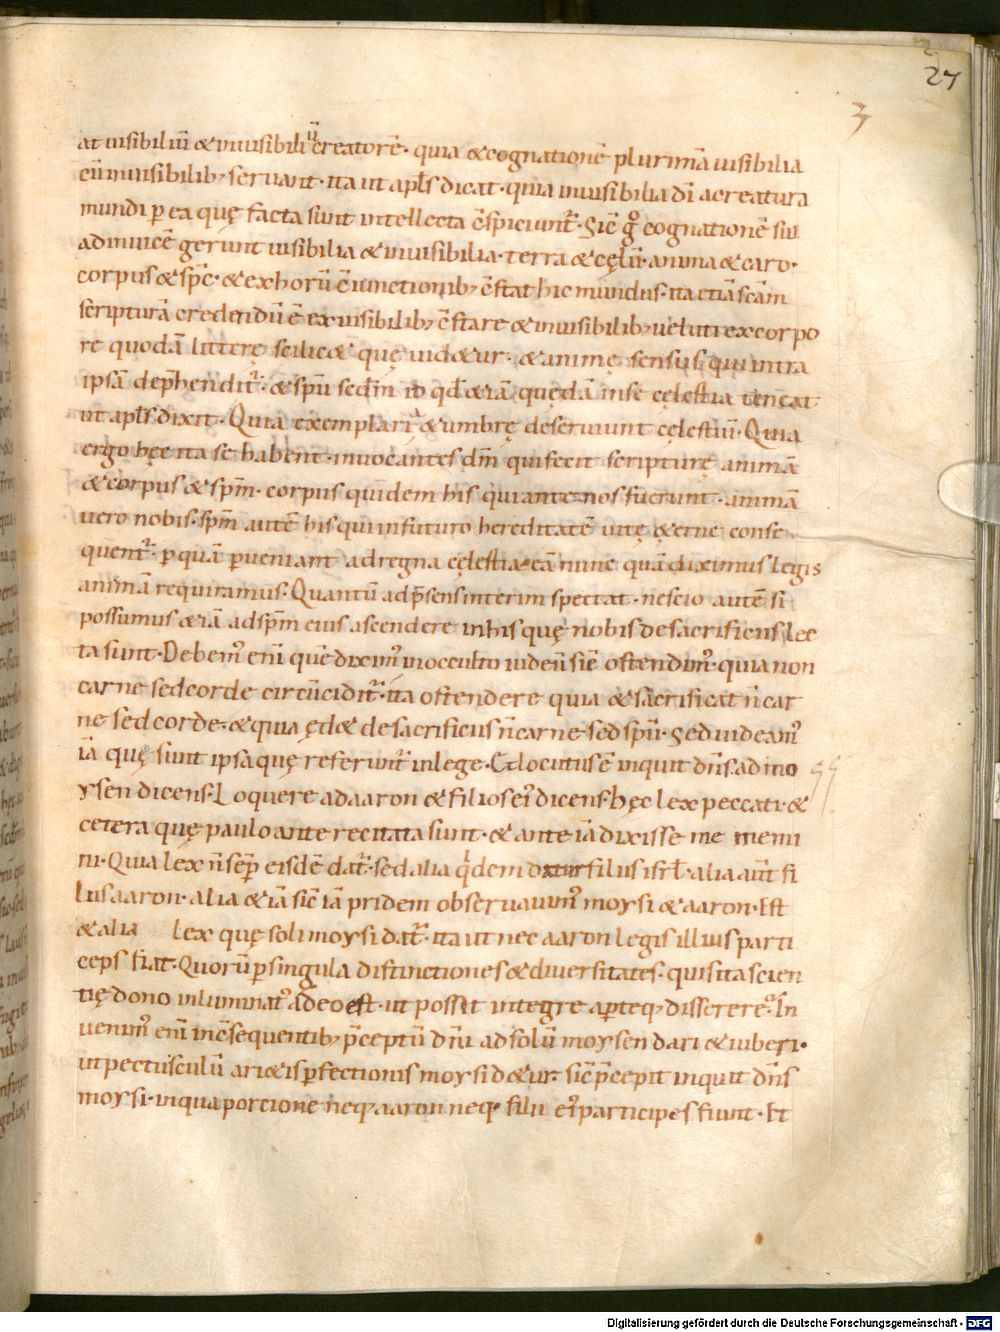 27
3
at uisibiliū & inuisibiliū creatorē. quia & cognationē plurimā uisibilia
cū inuisibilib; seruant. ita ut apl̄s dicat. quia inuisibilia dī a creatura
mundi p ea quę facta sunt intellecta c̄spiciunt᷑. Sic̄ g° cognationē sui
adinuicē gerunt uisibilia & inuisibilia. terra & cęlū. anima & caro.
corpus & sp̄c. & ex horū c̄iunctionib; c̄stat hic mundus. ita etiā scām
scripturā credendū ē ex uisibilib; c̄stare & inuisibilib; uelut ex corpo
re quodā litterę scilic& quę uid&ur. & animę sensus qui intra
ipsā dep̄hendit᷑. & sp̄u sedm̄ id qd̄ &iā quędā in se cęlestia teneat
ut apl̄s dixit. Quia exemplari & umbrę deseruiunt cęlestiū. Quia
ergo hęc ita se habent. inuocantes dm̄ qui fecit scripturę animā
& corpus & sp̄m. corpus quidem his qui ante nos fuerunt. animā
uero nobis. sp̄m autē his qui in futuro hereditatē uitę &erne conse
quent᷑. p quā pueniant ad regna cęlestia. eā nunc quā diximus legis
animā requiramus. Quantū ad p̄sens interim spectat. nescio autē si
possumus &iā ad sp̄m eius ascendere in his quę nobis de sacrificiis lec
ta sunt. Debem᾽ enī quē dixim᾽ in occulto iudeū sic̄ ostendim᾽. quia non
carne sed corde circūcidit᷑. ita ostendere quia & sacrificat n̄ car
ne sed corde. & quia ęd& de sacrificiis n̄ carne sed sp̄u. Sed uideam᾽
iā quę sunt ipsa quę referunt᷑ in lege. Et locutus ē inquit dn̄s ad mo
ysen dicens. Loquere ad aaron & filios ei᾽ dicens. hęc lex peccati. &
cetera quę paulo ante recitata sunt. & ante iā dixisse me memi
ni. Quia lex n̄ semp̄ eisdē dat᷑. sed alia qdem datur filiis isrl̄. alia aut̄ fi
liis aaron. alia &iā sic̄ iā pridem obseruauim᾽ moysi & aaron. Est
& alia lex quę soli moysi dat᷑. ita ut nec aaron legis illius parti
ceps fiat. Quorū p singula distinctiones & diuersitates. quis ita scien
tię dono inluminat᾽ a deo est. ut possit integre apteq; disserere. In
uenim᾽ enī in c̄sequentib; p̄ceptū dn̄i ad solū moysen dari & iuberi.
ut pectusculū ari&is pfectionis moysi d&ur. sic̄ p̄cepit inquit dn̄s
moysi. in qua portione neq; aaron neq; filii ei᾽ participes fiunt. Et
Digitalisierung gefördert durch die Deutsche Forschungsgemeinschaft - DFG